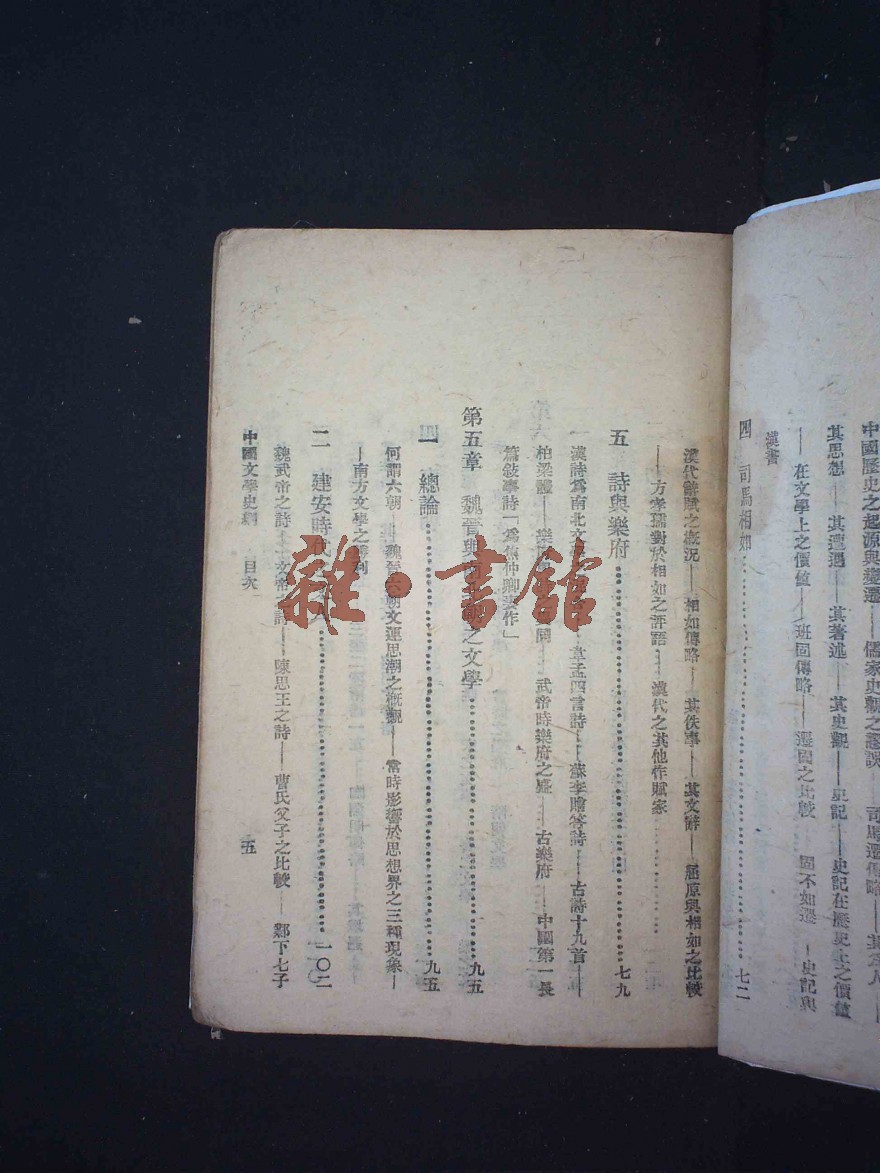 中國歷史之起源與變遷——儒家史觀之謬誤——司馬遷傳略——其為人——
其思想——其遭遇——其著述——其史觀——史記——史記在歷史上之價值
——在文學上之價值——班固傳略——遷固之比較——固不如遷——史記與
漢書
四 司馬相如………七二
漢代辭賦之概況——相如傳略——其佚事——其文辭——屈原與相如之比較
——方孝孺對於相如之評語——漢代之其他作賦家………
五 詩與樂府………七九
漢詩為南北文學——韋孟四言詩——蘇李贈答詩——古詩十九首——
柏梁體——武帝時樂府之盛——古樂府——中國第一長
篇敍事詩「為焦仲卿妻作」
第五章 魏晉與南北朝之文學………九五
一 總論………九五
何謂六朝——魏晉六朝文運思潮之概觀——當時影響於思想界之三種現象—
—南方文學之勝利
二 建安時代………一〇二
魏武帝之詩——文帝之詩——陳思王之詩——曹氏父子之比較——鄴下七子
中國文學史綱 目次 五
雜·書館